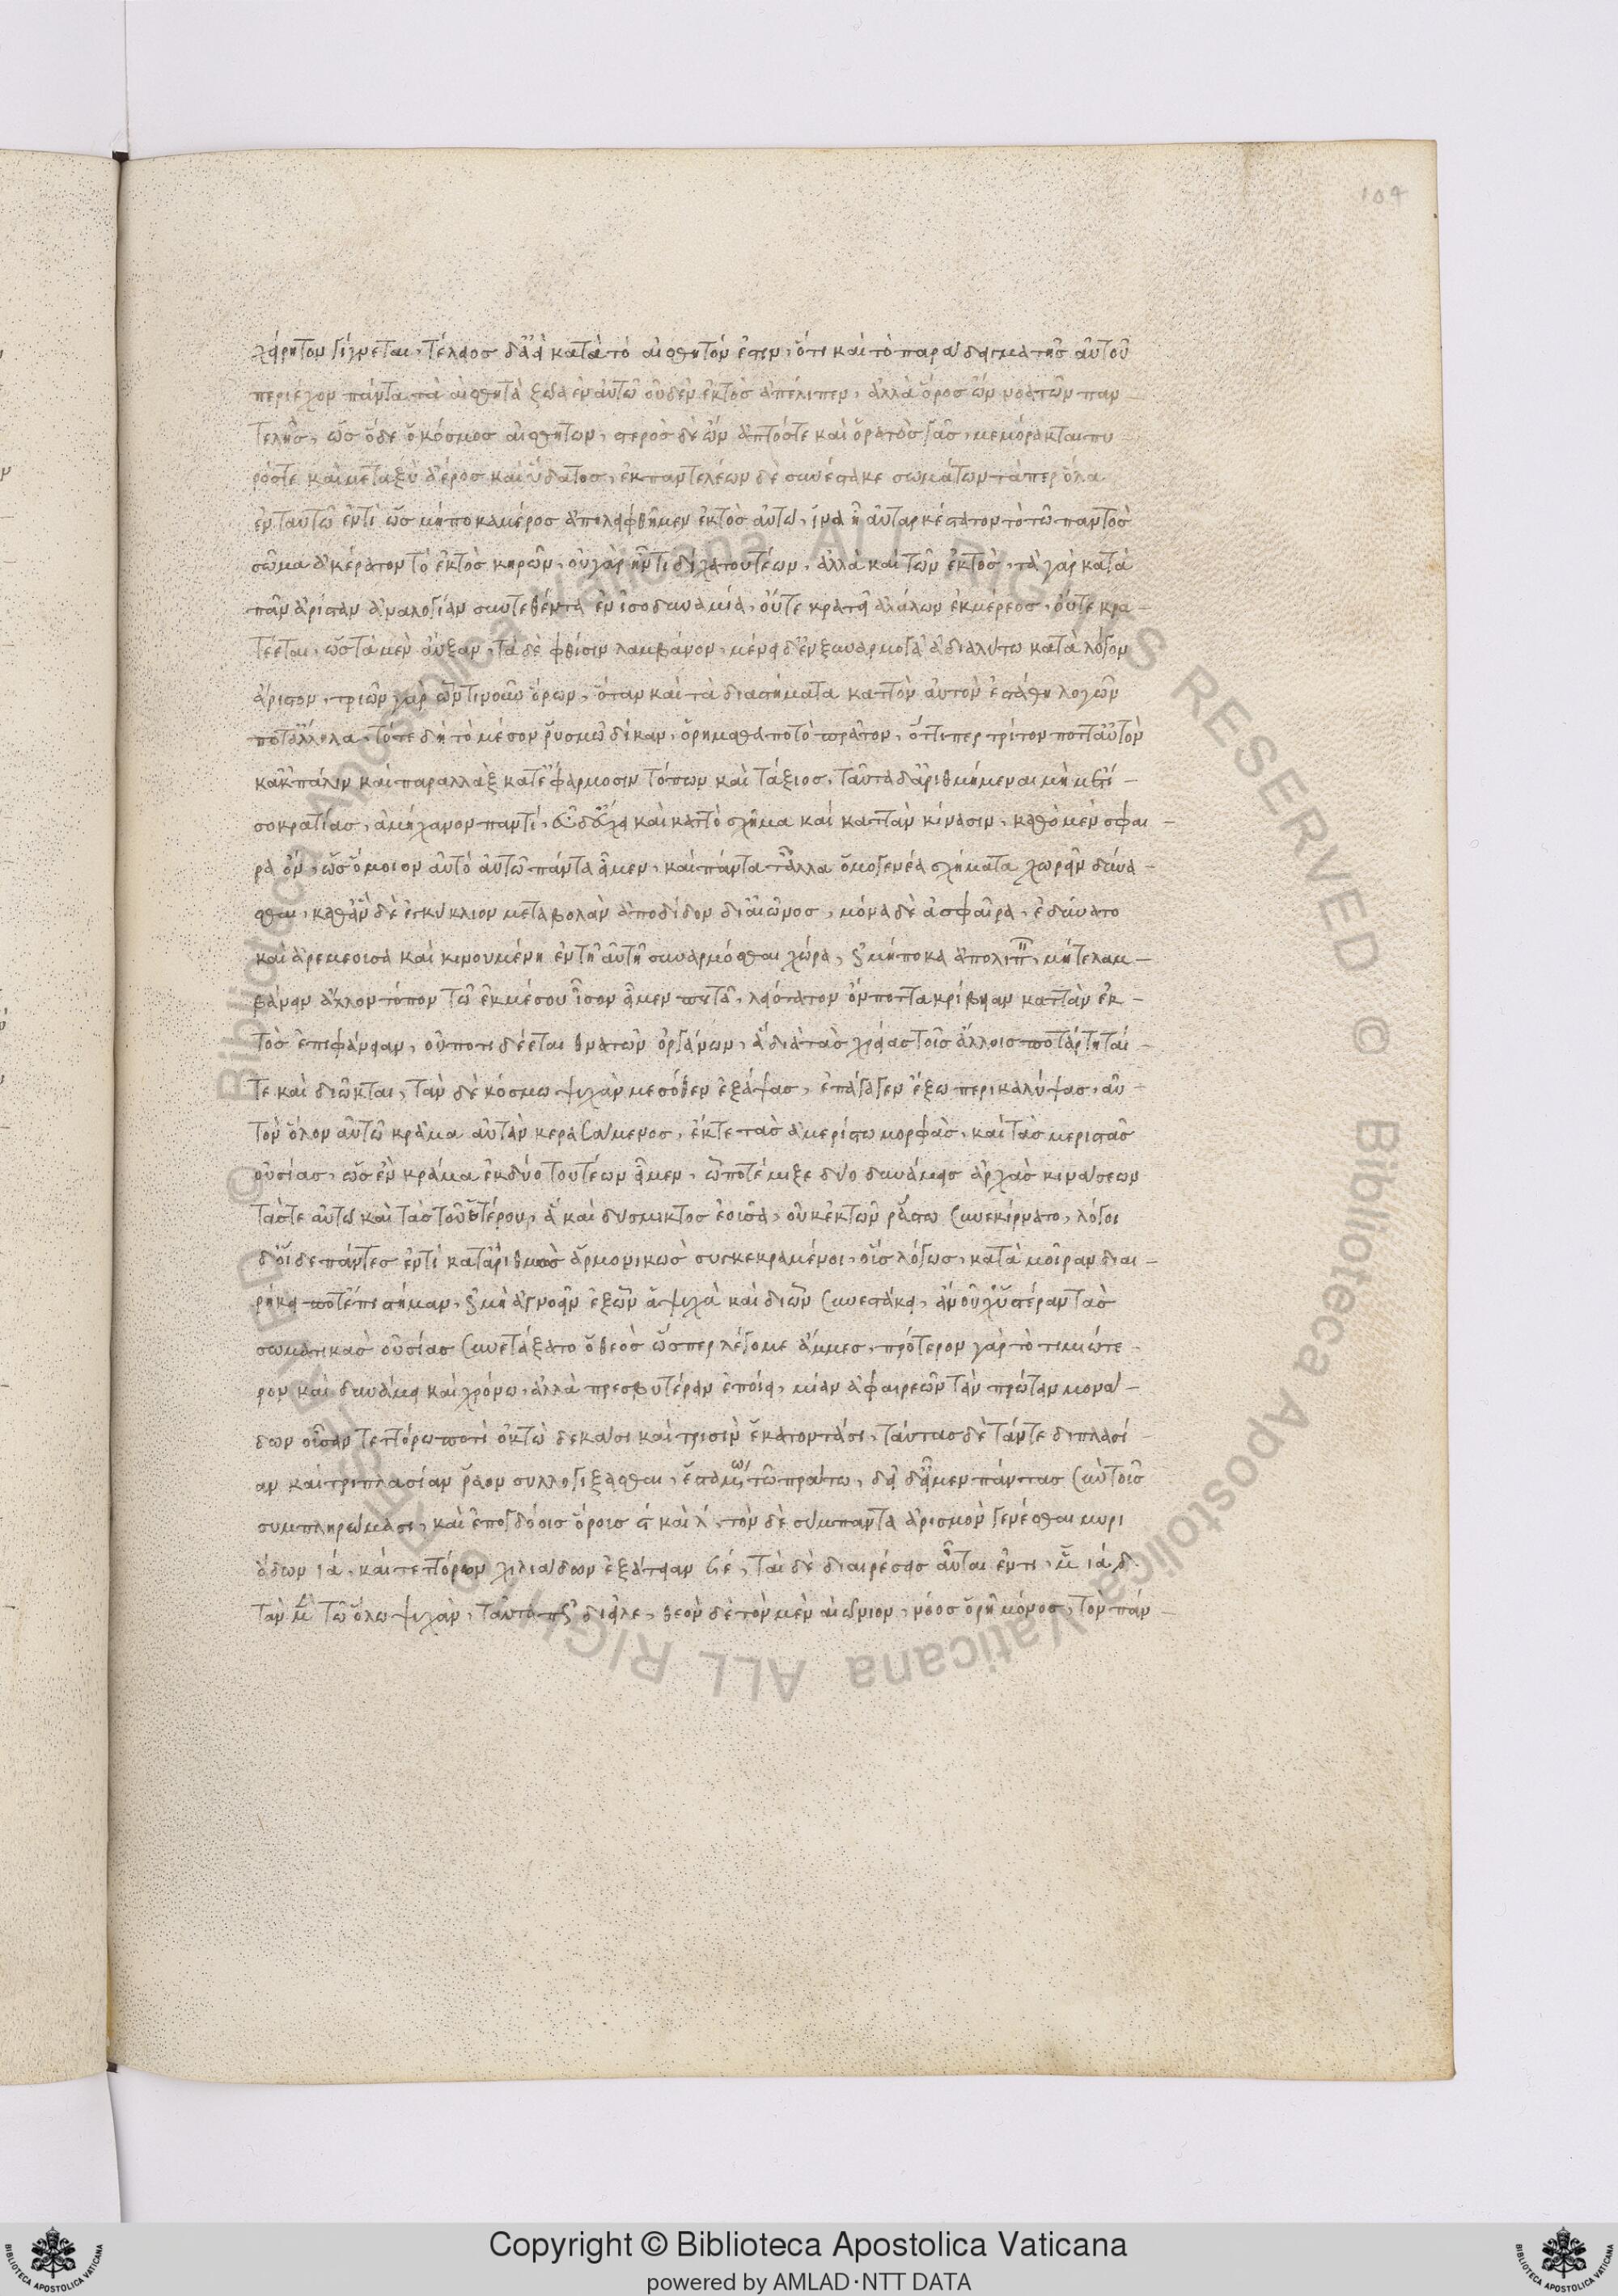 104
χείρητον γίγνεται, τέλεος δ' ἀεὶ κατὰ τὸ αἰσθητόν ἐστιν, ὅτι καὶ τὸ παράδειγμα τῆς αὐτοῦ
περιέχον πάντα τὰ αἰσθητὰ ζῶα ἐν αὐτῶ οὐδὲν ἐκτὸς ἀπέλιπεν, ἀλλὰ ὅρος ὢν νοατῶν παν
τελὴς, ὡς ὅδε ὁ κόσμος αἰσθητων, στερὸς δὲ ὢν ἁπτόστε καὶ ὁρατὸς γᾶς, μεμόρακται πυ
ρόστε καὶ μεταξὺ ἀέρος καὶ ὕδατος, ἐκ παντελέων δὲ συνέστακε σωμάτων τάπερ ὅλα
ἐν ταυτῶ ἐντὶ ὡς μήποκα μέρος ἀπολειφθῆμεν ἐκτὸς αὐτῶ, ἵνα ἦ αὐταρκέστατον τὸ τῶ παντὸς
σῶμα ἀκέρατον τὸ ἐκτὸς κηρῶν, οὐ γὰρ ἦν τι δίχα τουτέων, ἀλλὰ καὶ τῶν ἐκτὸς, τὰ γὰρ κατὰ
τὰν ἀρίσταν ἀναλογίαν συντεθέντα ἐν ἰσοδυναμία, οὔτε κρατεῖ ἀλάλων ἐκ μέρεος, οὔτε κρα
τέεται, ὡς τὰ μὲν αὔξαν, τὰ δὲ φθίσιν λαμβάνον, μένει δ' ἐν ξυναρμογᾶ ἀδιαλύτω κατὰ λόγον
ἄριστον, τριῶν γὰρ ὧντινοῦν ὅρων, ὅταν καὶ τὰ διαστήματα καττὸν αὐτὸν ἐστάθη λογῶν
ποτ' ἄλληλα, τότε δὴ τὸ μέσον ῥυσμῶ δίκαν, ὁρήμεθα ποτὸ πρᾶτον, ὅττιπερ τρίτον ποτταὐτὸν
κακπάλιν καὶ παραλλὰξ κατ' ἐφάρμοσιν τόπων καὶ τάξιος, ταῦτα δ' ἀριθμήμεναι μὴ μετ' ἰ
σοκρατίας, ἀμήχανον παντί, εὖ δ' ἔχει καὶ καττὸ σχῆμα καὶ καττὰν κίνασιν, καθὸ μὲν σφαι
ρα ὂν, ὡς ὅμοιον αὐτὸ αὐτῶ πάντα εἶμεν, καὶ πάντα τἆλλα ὁμογενέα σχήματα χωρεῖν δύνα
σθαι, καθ' ἂν δὲ ἐγκύκλιον μεταβολὰν ἀποδίδον δι' αἰῶνος, μόνα δὲ ἁ σφαῖρα, ἐδύνατο
καὶ ἀρεμέοισα καὶ κινουμένη ἐν τῇ αὐτῇ συναρμόσθαι χώρα, ὡς μήποκα ἀπολιπῆν, μήτε λαμ
βάνειν ἄλλον τόπον τῶ ἐκ μέσου ἴσον εἶμεν πάντα, λειότατον ὂν ποττ' ἀκρίβειαν καττὰν ἐκ
τὸς ἐπιφάνειαν, οὐ ποτιδέεται θνατῶν ὀργάνων, ἃ διὰ τὰς χρείας τοῖς ἄλλοις ποτάρτηταί
τε καὶ διῶκται, τὰν δὲ κόσμω ψυχὰν μεσόθεν ἐξάψας, ἐπάγαγεν ἔξω περικαλύψας, αὐ
τὸν ὅλον αὐτῶ κρᾶμα αὐτὰν κερασάμενος, ἔκτε τὰς ἀμερίστω μορφὰς, καὶ τὰς μεριστὰς
οὐσίας, ὡς ἓν κρᾶμα ἐκ δύο τουτέων εἶμεν, ὧ ποτέμιξε δύο δυνάμεις ἀρχὰς κινάσεων
τᾶστε αὐτῶ καὶ τᾶς τοῦ ἑτέρου, ἃ καὶ δύσμικτος ἐοῖσα, οὐκ ἐκ τῶν ῥάστω συνεκίρνατο, λόγοι
δ' οἵδε πάντες ἐντὶ κατ' ἀριθμοὺς ἁρμονικὼς συγκεκραμένοι, οἷς λόγως, κατὰ μοῖραν διαι
ρήκει ποτ' ἐπιστήμαν, ὡς μὴ ἀγνοεῖν ἐξ ὧν ἁ ψυχὰ καὶ δι' ὧν συνεστάκει, ἂν οὐχ ὑστέραν τᾶς
σωματικὰς οὐσίας συνετάξατο ὁ θεὸς ὥσπερ λέγομε ἄμμες, πρότερον γὰρ τὸ τιμιώτε
ρον καὶ δυνάμει καὶ χρόνω, ἀλλὰ πρεσβυτέραν ἐποίει, μίαν ἀφαιρεῶν τὰν πρώταν μονά
δων οἶσαν τεττόρω ποτὶ ὀκτὼ δεκάσι καὶ τρισὶν ἑκατοντάσι, ταύτας δὲ τάντε διπλασί
αν καὶ τριπλασίαν ῥᾶον συλλογίξασθαι, ἑσταμένω τῶ πράτω, δεῖ δ' εἶμεν πάντας σὺν τοῖς
συμπληρώμασι, καὶ ἐπογδόοις ὅροις ϛ καὶ λ, τὸν δὲ σύμπαντα ἀρισμὸν γενέσθαι μυρι
άδων ιά, καὶ τεττόρων χιλιάδων ἐξάττειαν ϛέ, ταὶ δὲ διαιρέσεις αὗται ἐντι, μ ιά δ.
τὰν μὲν τῶ ὅλω ψυχὰν, ταύτα πξ διεῖλε, θεὸν δὲ τὸν μὲν αἰώνιον, νόος ὁρῆ μόνος, τὸν πάν